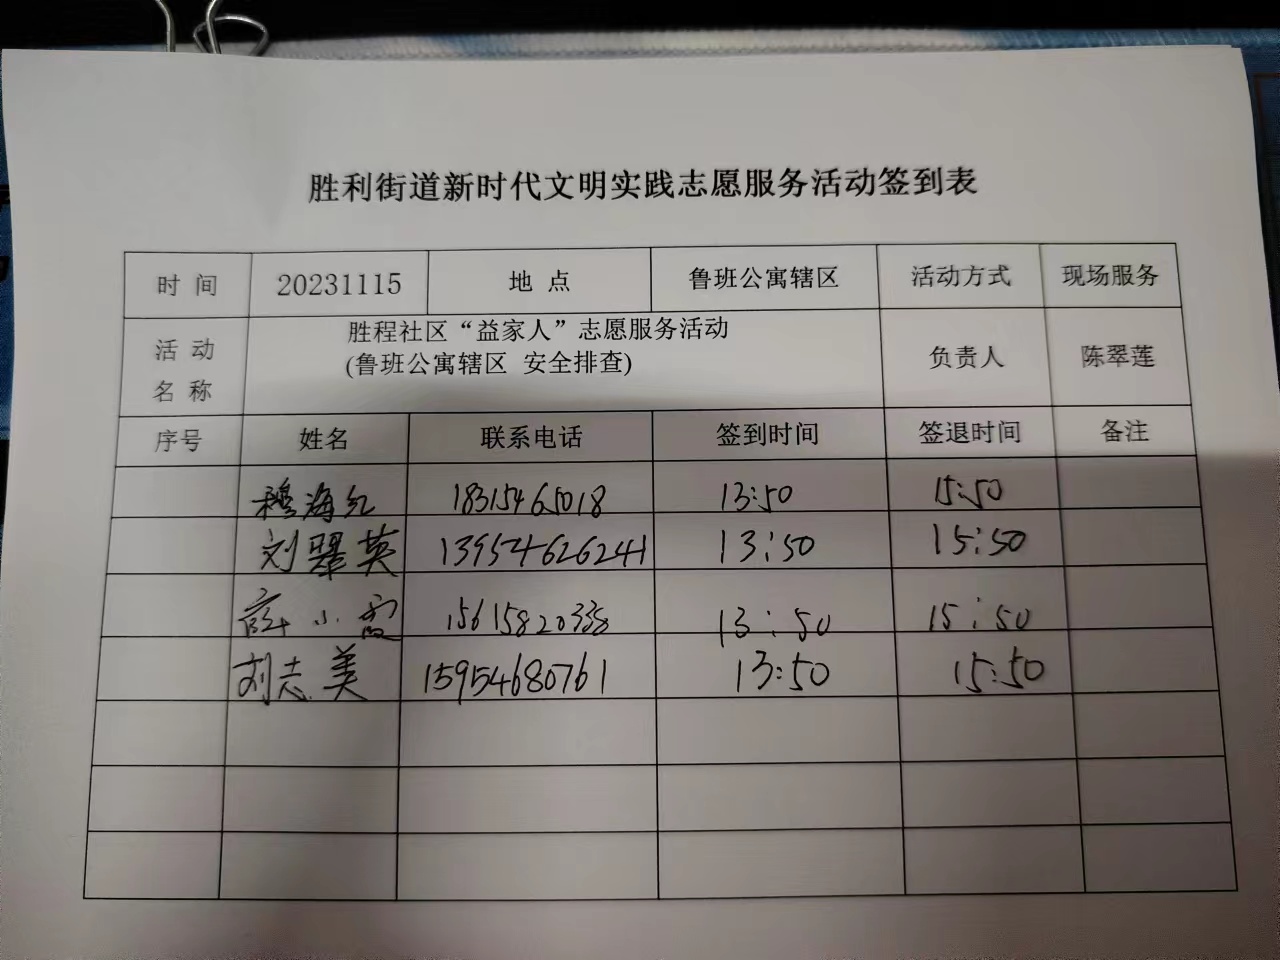 胜利街道新时代文明实践志愿服务活动签到表
时 间 20231115 地 点 鲁班公寓辖区 活动方式 现场服务
活 动 名 称 胜程社区“益家人”志愿服务活动 负责人 陈翠莲
(鲁班公寓辖区 安全排查)
序号 姓名 联系电话 签到时间 签退时间 备注
穆海红 18315465018 13:50 15:50
刘翠英 13954626241 13:50 15:50
薛小霞 15615820338 13:50 15:50
刘志美 15954680761 13:50 15:50